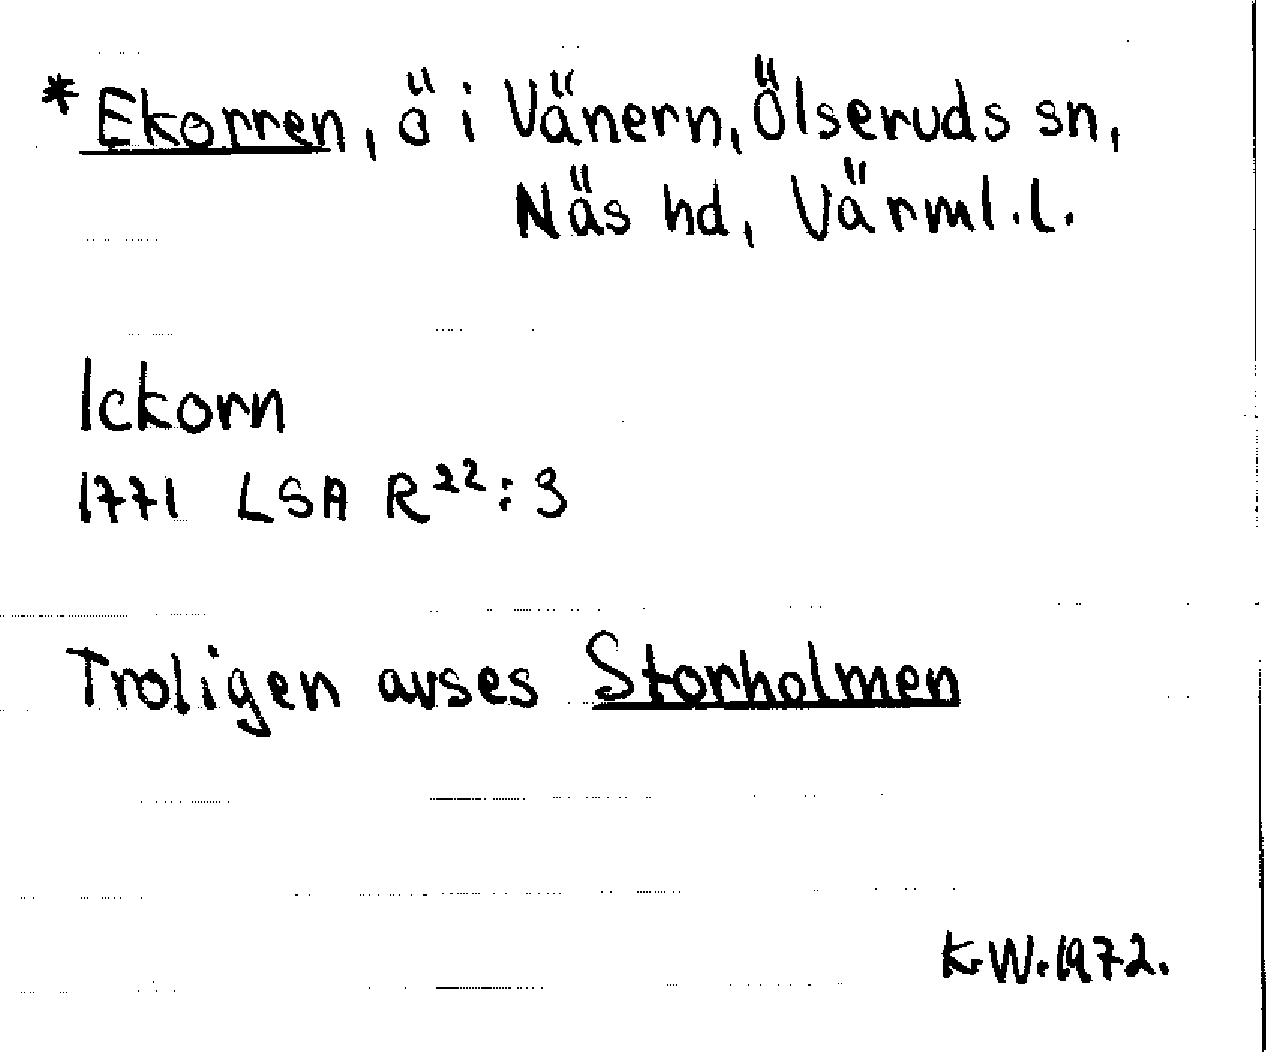 *Ekorren, ö i Vänern, Ölseruds sn,
Näs hd, Värml.l.
Ickorn
1771 LSA R²²:3
Troligen avses Storholmen
K.W.1972.